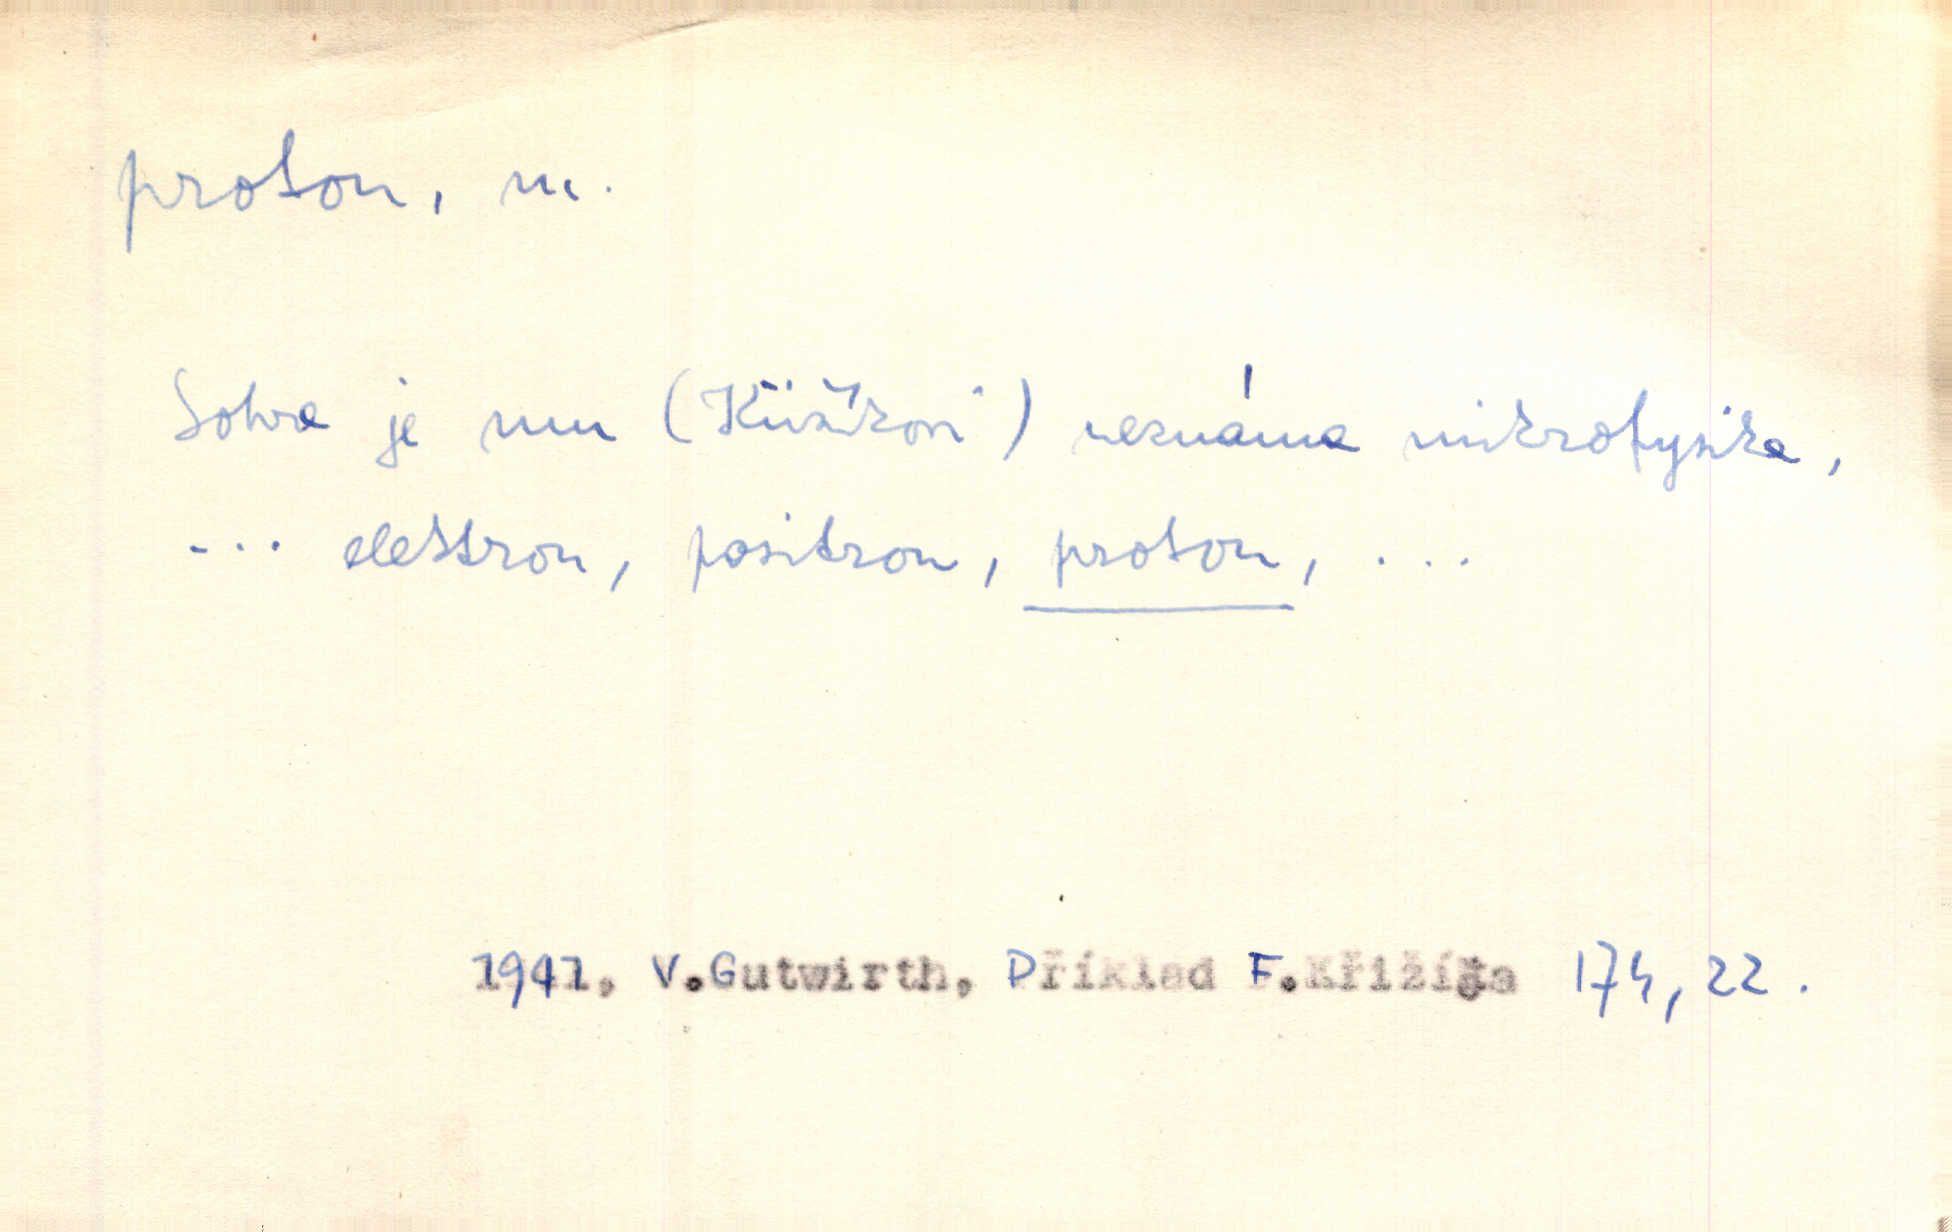 proton, m.
Sotva je mu (Křižíkovi) neznáma mikrofysika,
... elektron, positron, proton, ...
1941, V.Gutwirth, Příklad F.Křižíka 174, 22.